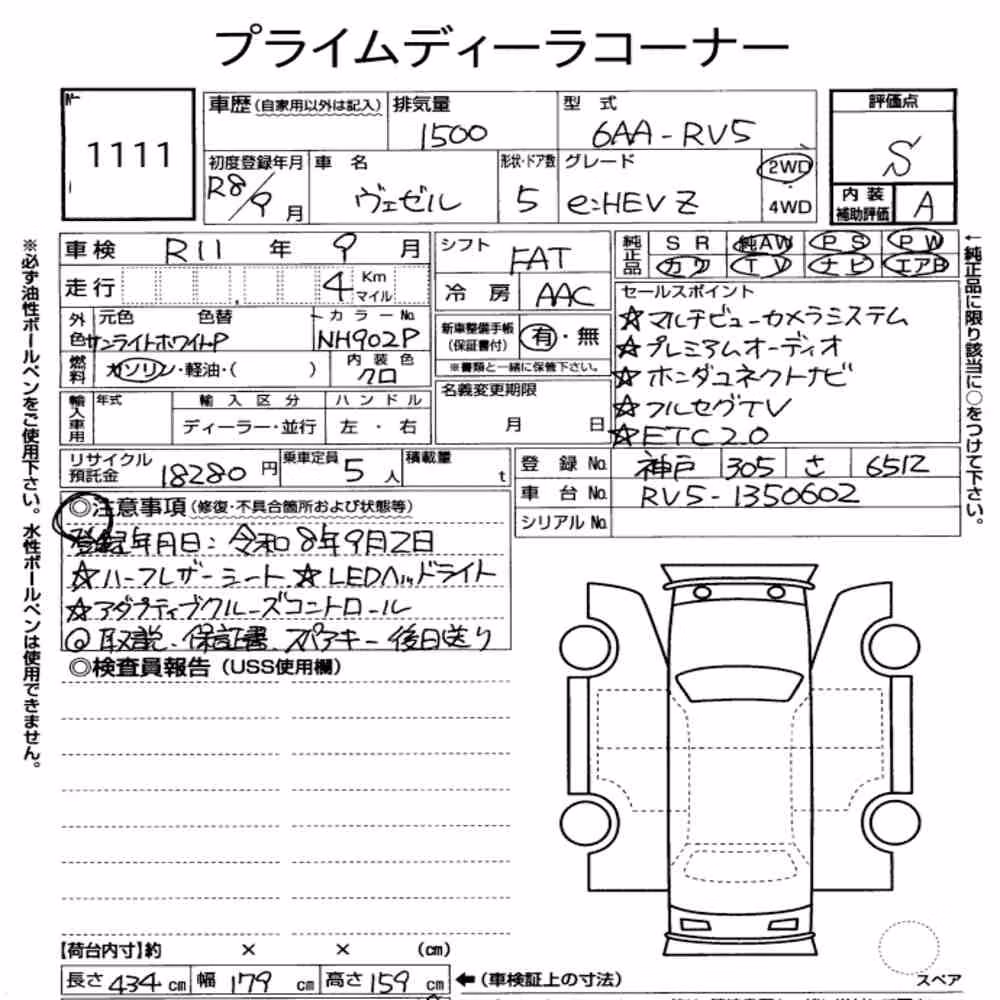 プライムディーラコーナー
№
1111
車歴(自家用以外は記入)
排気量
1500
型式
6AA-RV5
評価点
S
初度登録年月
R8/9月
車名
ヴェゼル
形状・ドア数
5
グレード
e:HEV Z
2WD
4WD
内装補助評価
A
車検 R11年9月
走行 4 Km マイル
外色 元色 色替
サンライトホワイトP
カラーNo.
NH902P
燃料 ガソリン・軽油・( )
内装色
クロ
輸入車用 年式
輸入区分
ディーラー・並行
ハンドル
左・右
シフト FAT
冷房 AAC
新車整備手帳(保証書付) 有・無
※書類と一緒に保管下さい。
名義変更期限
月 日
純正品
SR 純AW PS PW
カワ TV ナビ エアB
セールスポイント
☆マルチビューカメラシステム
☆プレミアムオーディオ
☆ホンダコネクトナビ
☆フルセグTV
☆ETC2.0
リサイクル預託金 18280円
乗車定員 5人
積載量 t
登録No. 神戸 305 さ 6512
車台No. RV5-1350602
シリアルNo.
◎注意事項(修復・不具合箇所および状態等)
登録年月日:令和8年9月2日
☆ハーフレザーシート ☆LEDヘッドライト
☆アダプティブクルーズコントロール
◎取説、保証書、スペアキー後日送り
◎検査員報告(USS使用欄)
【荷台内寸】約 × × (cm)
長さ434cm 幅179cm 高さ159cm
←(車検証上の寸法)
スペア
※必ず油性ボールペンをご使用下さい。水性ボールペンは使用できません。
←純正品に限り該当に○をつけて下さい。